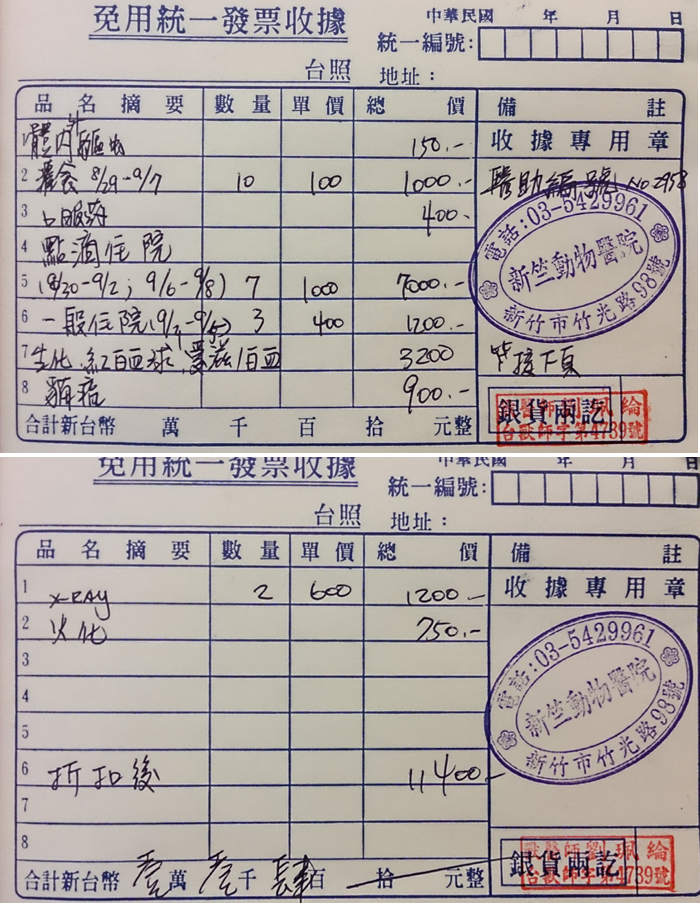 免用統一發票收據
中華民國 年 月 日
統一編號:
台照 地址:
品名摘要 數量 單價 總價 備註
收據專用章
體內外驅蟲 150.-
2 灌食 8/29-9/7 10 100 1000.-
醫助編號 No2958
3 口服藥 400.-
4 點滴住院
5 (8/30-9/2; 9/6-9/8) 7 1000 7000.-
6 一般住院(9/3-9/5) 3 400 1200.-
7 生化、紅白血球 3200
8 貓瘟 900.-
電話:03-5429961
新竺動物醫院
新竹市竹光路98號
接下頁
銀貨兩訖
獸醫師劉珮綸
台獸師字第4739號
合計新台幣 萬 千 百 拾 元整
免用統一發票收據
中華民國 年 月 日
統一編號:
台照 地址:
品名摘要 數量 單價 總價 備註
收據專用章
1 X-RAY 2 600 1200.-
2 火化 750.-
3
4
5
6 折扣後 11400.-
7
8
電話:03-5429961
新竺動物醫院
新竹市竹光路98號
銀貨兩訖
獸醫師劉珮綸
台獸師字第4739號
合計新台幣 壹萬 壹千 肆百 拾 元整